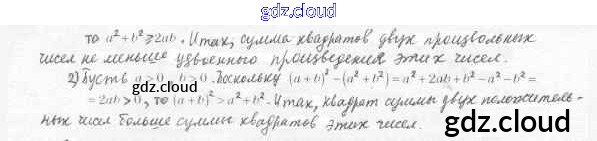 gdz.cloud
то a² + b² ⩾ 2ab. Итак, сумма квадратов двух произвольных
чисел не меньше удвоенного произведения этих чисел.
2) Пусть a > 0, b > 0. Поскольку (a + b)² − (a² + b²) = a² + 2ab + b² − a² − b² =
gdz.cloud
= 2ab > 0, то (a + b)² > a² + b². Итак, квадрат суммы двух положитель-
ных чисел больше суммы квадратов этих чисел.
gdz.cloud